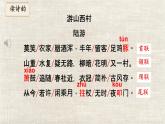 读诗韵
游山西村
陆游
tún
莫笑/农家/腊酒浑，丰年/留客/足鸡豚。 首联
山重/水复/疑无路，柳暗/花明/又一村。 颔联
xiāo
箫鼓/追随/春社近，衣冠/简朴/古风存。 颈联
zhǔ kòu
从今/若许/闲乘月，拄杖/无时/夜叩门。 尾联